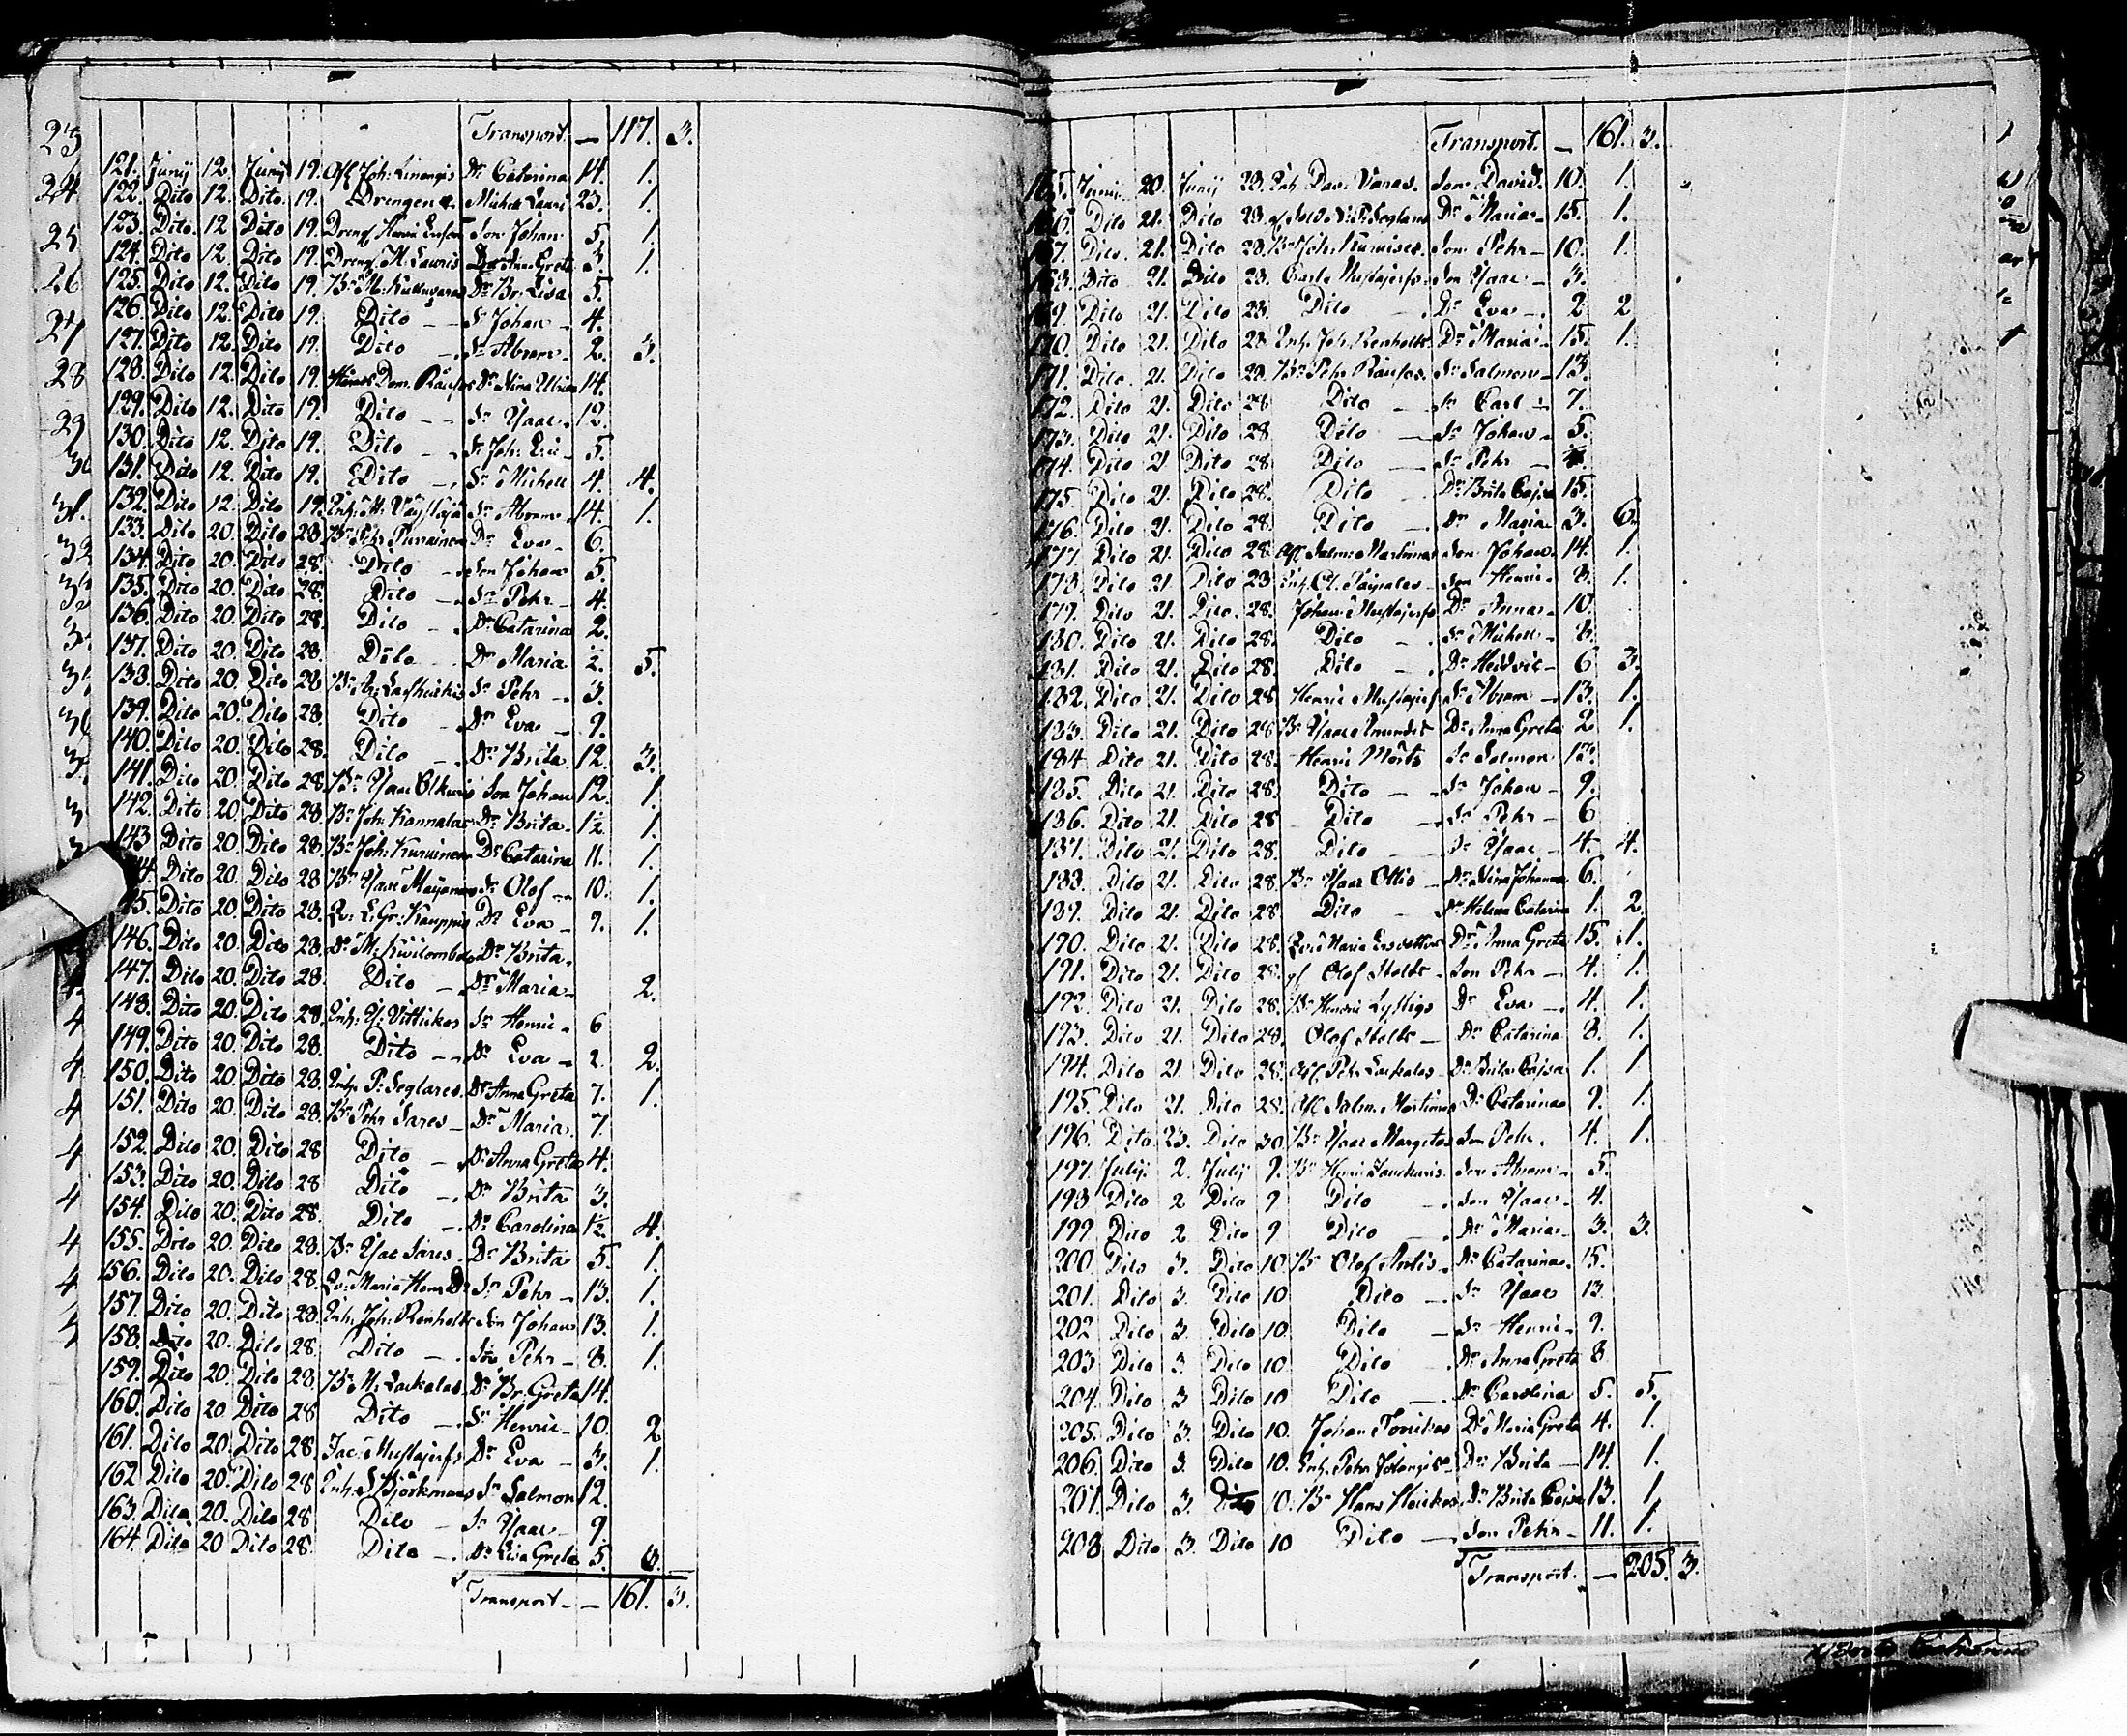 Transport. — 117. 3.
121. Junij 12. Junij 19. Afl Joh: Dr Catarina 14. 1.
122. Dito 12. Dito 19. Drengen Michell Lauri 23. 1.
123. Dito 12. Dito 19. Dreng Henric Son Johan 5. 1.
124. Dito 12. Dito 19. Dreng. M. Lauris Dr Anna Greta 3. 1.
125. Dito 12. Dito 19. Bn M: Dr Br. Lisa 5.
126. Dito 12. Dito 19. Dito — Sn Johan 4.
127. Dito 12. Dito 19. Dito — Sn Abram 2. 3.
128. Dito 12. Dito 19. Dr Ulrica 14.
129. Dito 12. Dito 19. Dito — Sn Ysaac 12.
130. Dito 12. Dito 19. Dito — Sn Joh: Eric 5.
131. Dito 12. Dito 19. Dito — Sn Michell 4. 4.
132. Dito 12. Dito 19. Inh: M. Sn Abram 14. 1.
133. Dito 20. Dito 28. Bn Pehr Dr Eva 6.
134. Dito 20. Dito 28. Dito — Son Johan 5.
135. Dito 20. Dito 28. Dito — Sn Pehr 4.
136. Dito 20. Dito 28. Dito — Dr Catarina 2.
137. Dito 20. Dito 28. Dito Dr Maria ½. 5.
138. Dito 20. Dito 28 Bn Sn Pehr 3.
139. Dito 20. Dito 28. Dito — Dr Eva 9.
140. Dito 20. Dito 28. Dito — Dr Brita 12. 3.
141. Dito 20. Dito 28. Bn Ysaac Son Johan 12. 1.
142. Dito 20. Dito 28 Bn Joh: Kannalas Dr Brita 1½. 1.
143 Dito 20. Dito 28. Bn Joh: Kuruinen Dr Catarina 11. 1.
Dito 20. Dito 28 Bn Ysaac Sn Olof — 10. 1.
Dito 20. Dito 28. L: Gr: Kauppis Dr Eva 9. 1.
146. Dito 20. Dito 28. M: Dr Brita.
147. Dito 20. Dito 28. Dito — Dr Maria 2.
148. Dito 20. Dito 28. Inh: Y: Vittickos Sn Henric 6
149. Dito 20. Dito 28. Dito — Dr Eva 2. 2.
150. Dito 20. Dito 28. Inh: P: Seglares Dr Anna Greta 7. 1.
151. Dito 20. Dito 28. Bn Pehr Sares Dr Maria 7.
152. Dito 20. Dito 28 Dito — Dr Anna Greta 4.
153. Dito 20. Dito 28 Dito — Dr Brita 3.
154. Dito 20. Dito 28. Dito — Dr Carolina 1½ 4.
155. Dito 20. Dito 28. Bn Ysac Sares Dr Brita 5. 1.
156. Dito 20. Dito 28. Maria Sn Pehr 13. 1.
157. Dito 20. Dito 28. Inh: Joh: Renholts Son Johan 13. 1.
158. Dito 20. Dito 28. Dito — Son Pehr 8. 1.
159. Dito 20. Dito 28. Bn M: Lackalas Dr Br. Greta 14.
160. Dito 20. Dito 28 Dito — Sn Henric 10. 2
161. Dito 20. Dito 28. Jac: Mustajerfs Dr Eva 3. 1.
162 Dito 20. Dito 28 Inh: Björkmans Sn Salmon 12.
163. Dito 20. Dito 28 Dito — Sn Ysaac 9.
164. Dito 20 Dito 28. Dito — Dr Lisa Greta 5. 3.
Transport — 161. 3.
Transport. — 161. 3.
165. Junij 20. Junij 28. Inh. Dav: Varas. Son David. 10. 1.
166. Dito 21. Dito 28. Dr Maria 15. 1.
167. Dito. 21. Dito 28. Bn Joh: Kuruises. Son Pehr 10. 1.
168. Dito 21. Dito 28. Carl Mustajerfs. Son Ysaac 3.
169. Dito 21. Dito 28. Dito Dr Eva 2 2
170. Dito 21. Dito 28 Inh. Joh: Renholts Dr Maria 15. 1.
171. Dito. 21. Dito 28. Bn Pehr Raufos. Sn Salmon 13.
172. Dito 21. Dito 28 Dito — Sn Carl 7.
173. Dito 21. Dito 28 Dito — Sn Johan 5.
174. Dito 21 Dito 28 Dito — Sn Pehr
175. Dito 21. Dito 28. Dito Dr Brita Cajsa 15.
176. Dito 21. Dito 28. Dito — Dr Maria 3. 6.
177. Dito 21. Dito 28. Afl Salm: Martimos Son Johan 14. 1.
178. Dito 21. Dito 28 Inh. Ol. Taipales Son Henric 8. 1.
179. Dito 21. Dito. 28. Johan Mustajerfs Dr Anna 10
180. Dito 21. Dito 28. Dito Sn Michell 8.
181. Dito 21. Dito 28. Dito — Dr Hedvic 6 3.
182. Dito 21. Dito 28 Henric Mustajerf Sn Abram 13. 1.
183. Dito 21. Dito 28 Bn Ysaac Amundis Dr Anna Greta 2 1.
184. Dito 21. Dito 28. Henric Mörts Sn Salmon 12.
185. Dito 21. Dito 28. Dito — Sn Johan 9.
186. Dito 21. Dito 28 Dito — Sn Pehr 6
187. Dito 21. Dito 28. Dito Sn Ysaac 4. 4.
188. Dito 21. Dito 28. Bn Ysaac Ollis Dr Johanna 6.
189. Dito 21. Dito 28 Dito — Dr Helena Catarina 1. 2.
190. Dito 21. Dito 28. Maria Dr Anna Greta 15. 1.
191. Dito 21. Dito 28. Olof Stolts Son Pehr 4. 1.
192. Dito 21. Dito 28. Bn Henric Dr Eva 4. 1.
193. Dito 21. Dito 28. Olof Stolts Dr Catarina 8. 1.
194. Dito 21. Dito 28. Afl. Pehr Lackalas Dr Brita Cajsa 1. 1
195. Dito 21. Dito 28. Afl Salm. Martimos Dr Catarina 9. 1.
196. Dito 23. Dito 30. Bn Ysaac Son Pehr. 4. 1.
197. Julij 2. Julij 9. Bn Henric Son Abram 5.
198 Dito 2 Dito 9 Dito — Son Ysaac 4.
199. Dito 2 Dito 9 Dito Dr Maria 3. 3.
200. Dito 3. Dito 10. Bn Olof Antis Dr Catarina 15.
201. Dito 3. Dito 10 Dito — Sn Ysaac 13
202 Dito 3. Dito 10. Dito Sn Henric 9.
203 Dito 3. Dito 10 Dito Dr Anna Greta 8
204. Dito 3 Dito 10 Dito — Dr Carolina 5. 5.
205. Dito 3. Dito 10. Johan Dr Maria Greta 4. 1.
206. Dito 3. Dito 10. Inh. Pehr Dr Brita 14. 1.
207. Dito 3. Dito 10. Bn Hans Heickes Dr Brita Cajsa 13. 1.
208 Dito 3. Dito 10 Dito — Son Pehr 11. 1.
Transport. — 205. 3.